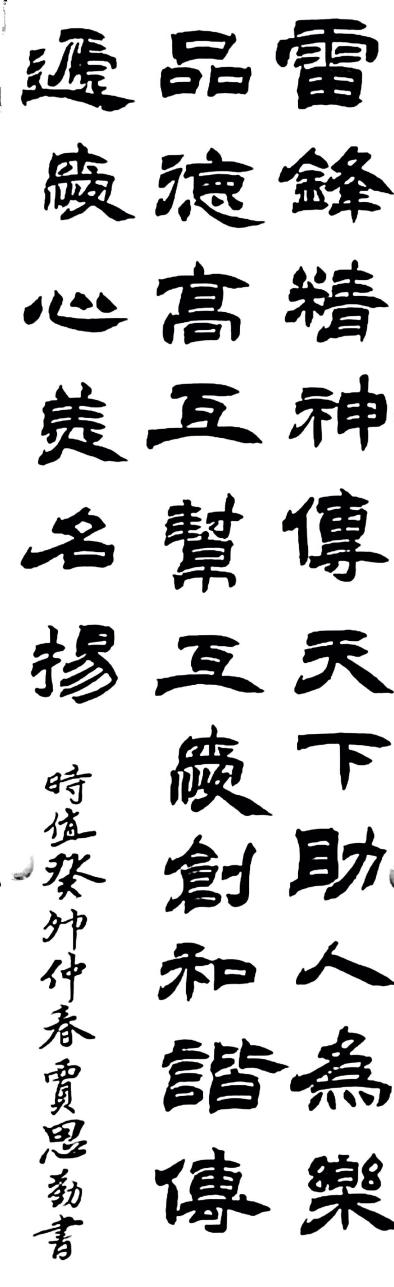 雷鋒精神傳天下助人為樂
品德高互幫互愛創和諧傳
遞愛心美名揚
時值癸卯仲春賈思勤書